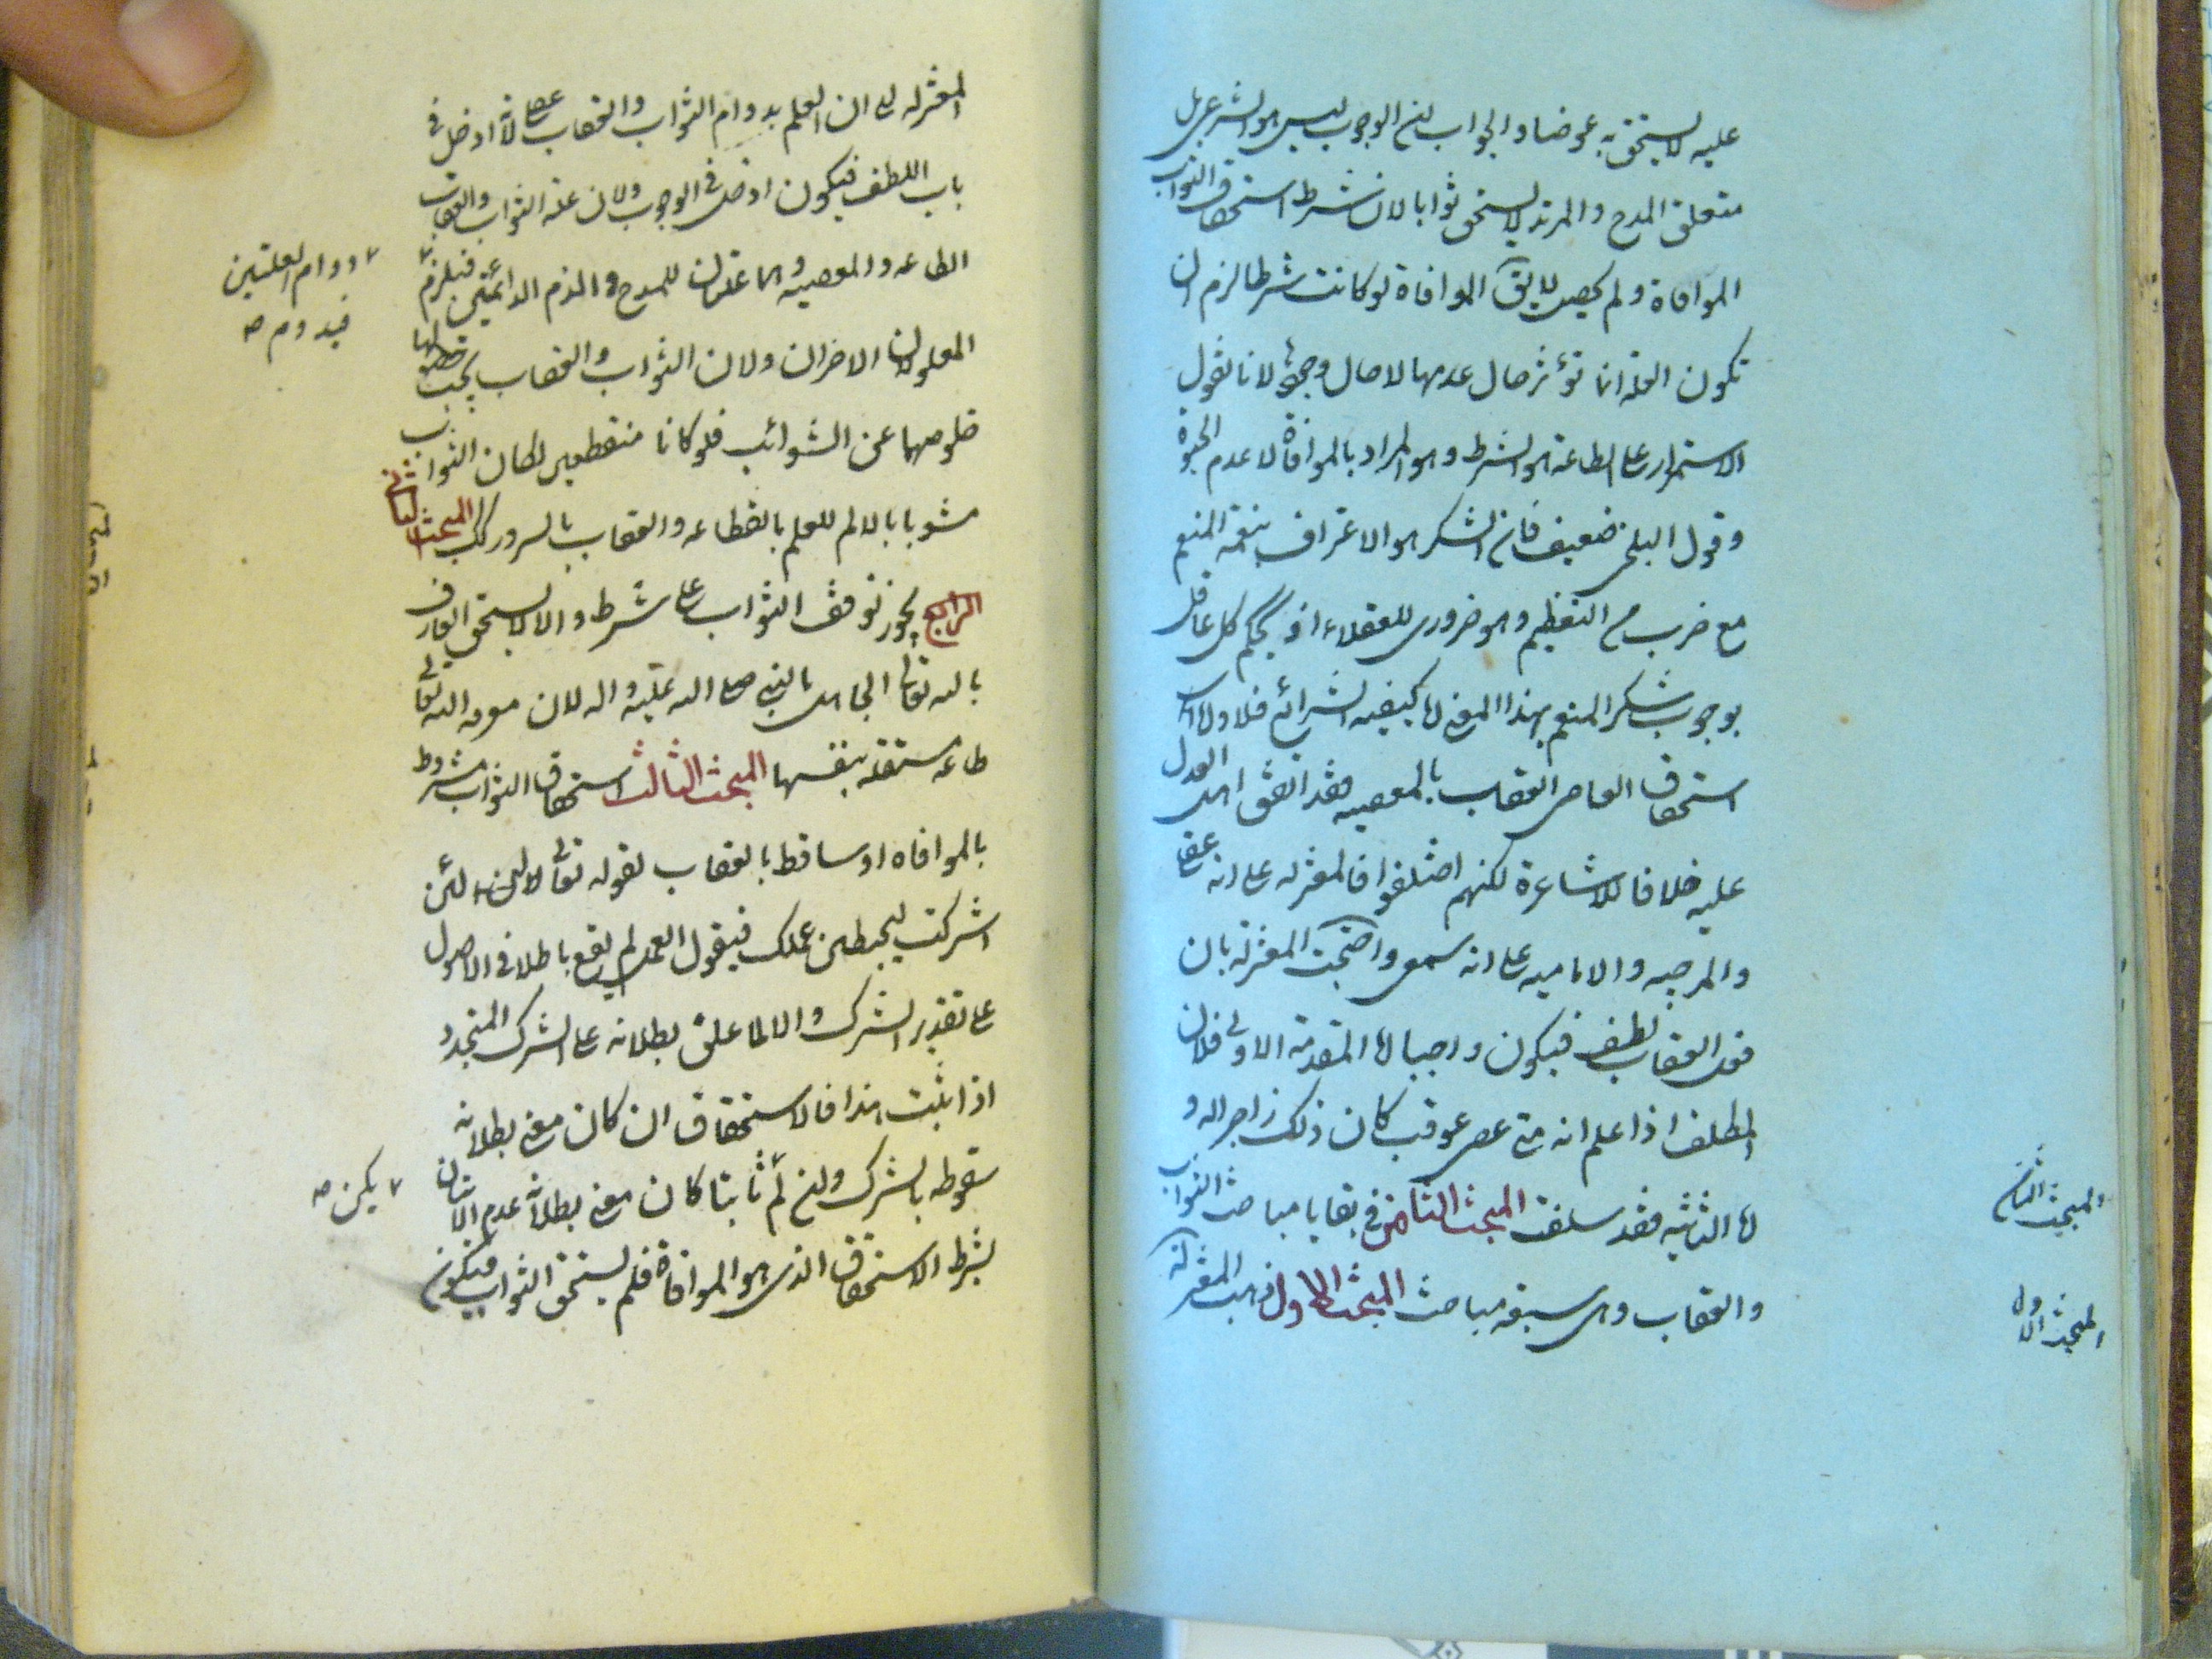 عليه لا يستحق به عوضا والجواب منع الوجوب ليس هو الشرعي بل
متعلق المدح والمرتد لا يستحق ثوابا لان شرط استحقاق الثواب
الموافاة ولم يحصل لا يق الموافاة لو كانت شرطا لزم ان
تكون العلة انما تؤثر حال عدمها لا حال وجودها لانا نقول
الاستمرار على الطاعة هو الشرط وهو المراد بالموافاة لا عدم الحيوة
وقول البلخي ضعيف فان الشكر هو الاعتراف بنعمة المنعم
مع ضرب من التعظيم وهو ضروري للعقلاء اذ يحكم كل عاقل
بوجوب شكر المنعم بهذا المعنى اما كيفية الشرائع فلا واما
استحقاق العاصي العقاب بالمعصية فقد اتفق اهل العدل
عليه خلافا للاشاعرة لكنهم اختلفوا فالمعتزلة على انه عقلي
والمرجئه والاماميه على انه سمعي واحتجت المعتزلة بان
فعل العقاب لطف فيكون واجبا اما المقدمة الاولى فلان
المكلف اذا علم انه متى عصى عوقب كان ذلك زاجرا له و
اما الثانية فقد سلفت المبحث الثامن في بقايا مباحث الثواب
والعقاب وهي سبعة مباحث المبحث الاول ذهبت المعتزلة
المبحث الثامن
المبحث الاول
المعتزلة الى ان العلم بدوام الثواب والعقاب عقلي لانه ادخل في
باب اللطف فيكون ادخل في الوجوب ولان علة الثواب والعقاب
الطاعه والمعصيه وهما علتان للمدح والذم الدائمين فيلزم
دوام العلتين
فيدوم صه
المعلولان الاخران ولان الثواب والعقاب يجب
خلوصهما عن الشوائب فلو كانا منقطعين لكان الثواب
مشوبا بالالم للعلم بانقطاعه والعقاب بالسرور كذلك المبحث الثاني
الرابع يجوز توقف الثواب على شرط والا لاستحق العارف
بالله تعالى الجاهل بالنبي صلى الله عليه واله لان معرفة الله تعالى
طاعه مستقلة بنفسها المبحث الثالث استحقاق الثواب مشروط
بالموافاه او ساقط بالعقاب لقوله تعالى لئن
اشركت ليحبطن عملك فيقول العمل لم يقع باطلا في الاصول
على تقدير الشرك والا لما علق بطلانه على الشرك المتجدد
اذا ثبت هذا فالاستحقاق ان كان معنى بطلانه
سقوطه بالشرك وان لم ثابتا كان معنى بطلانه عدم الاتيان
يكن صه
بشرط الاستحقاق الذي هو الموافاة فلم يستحق الثواب فيكون